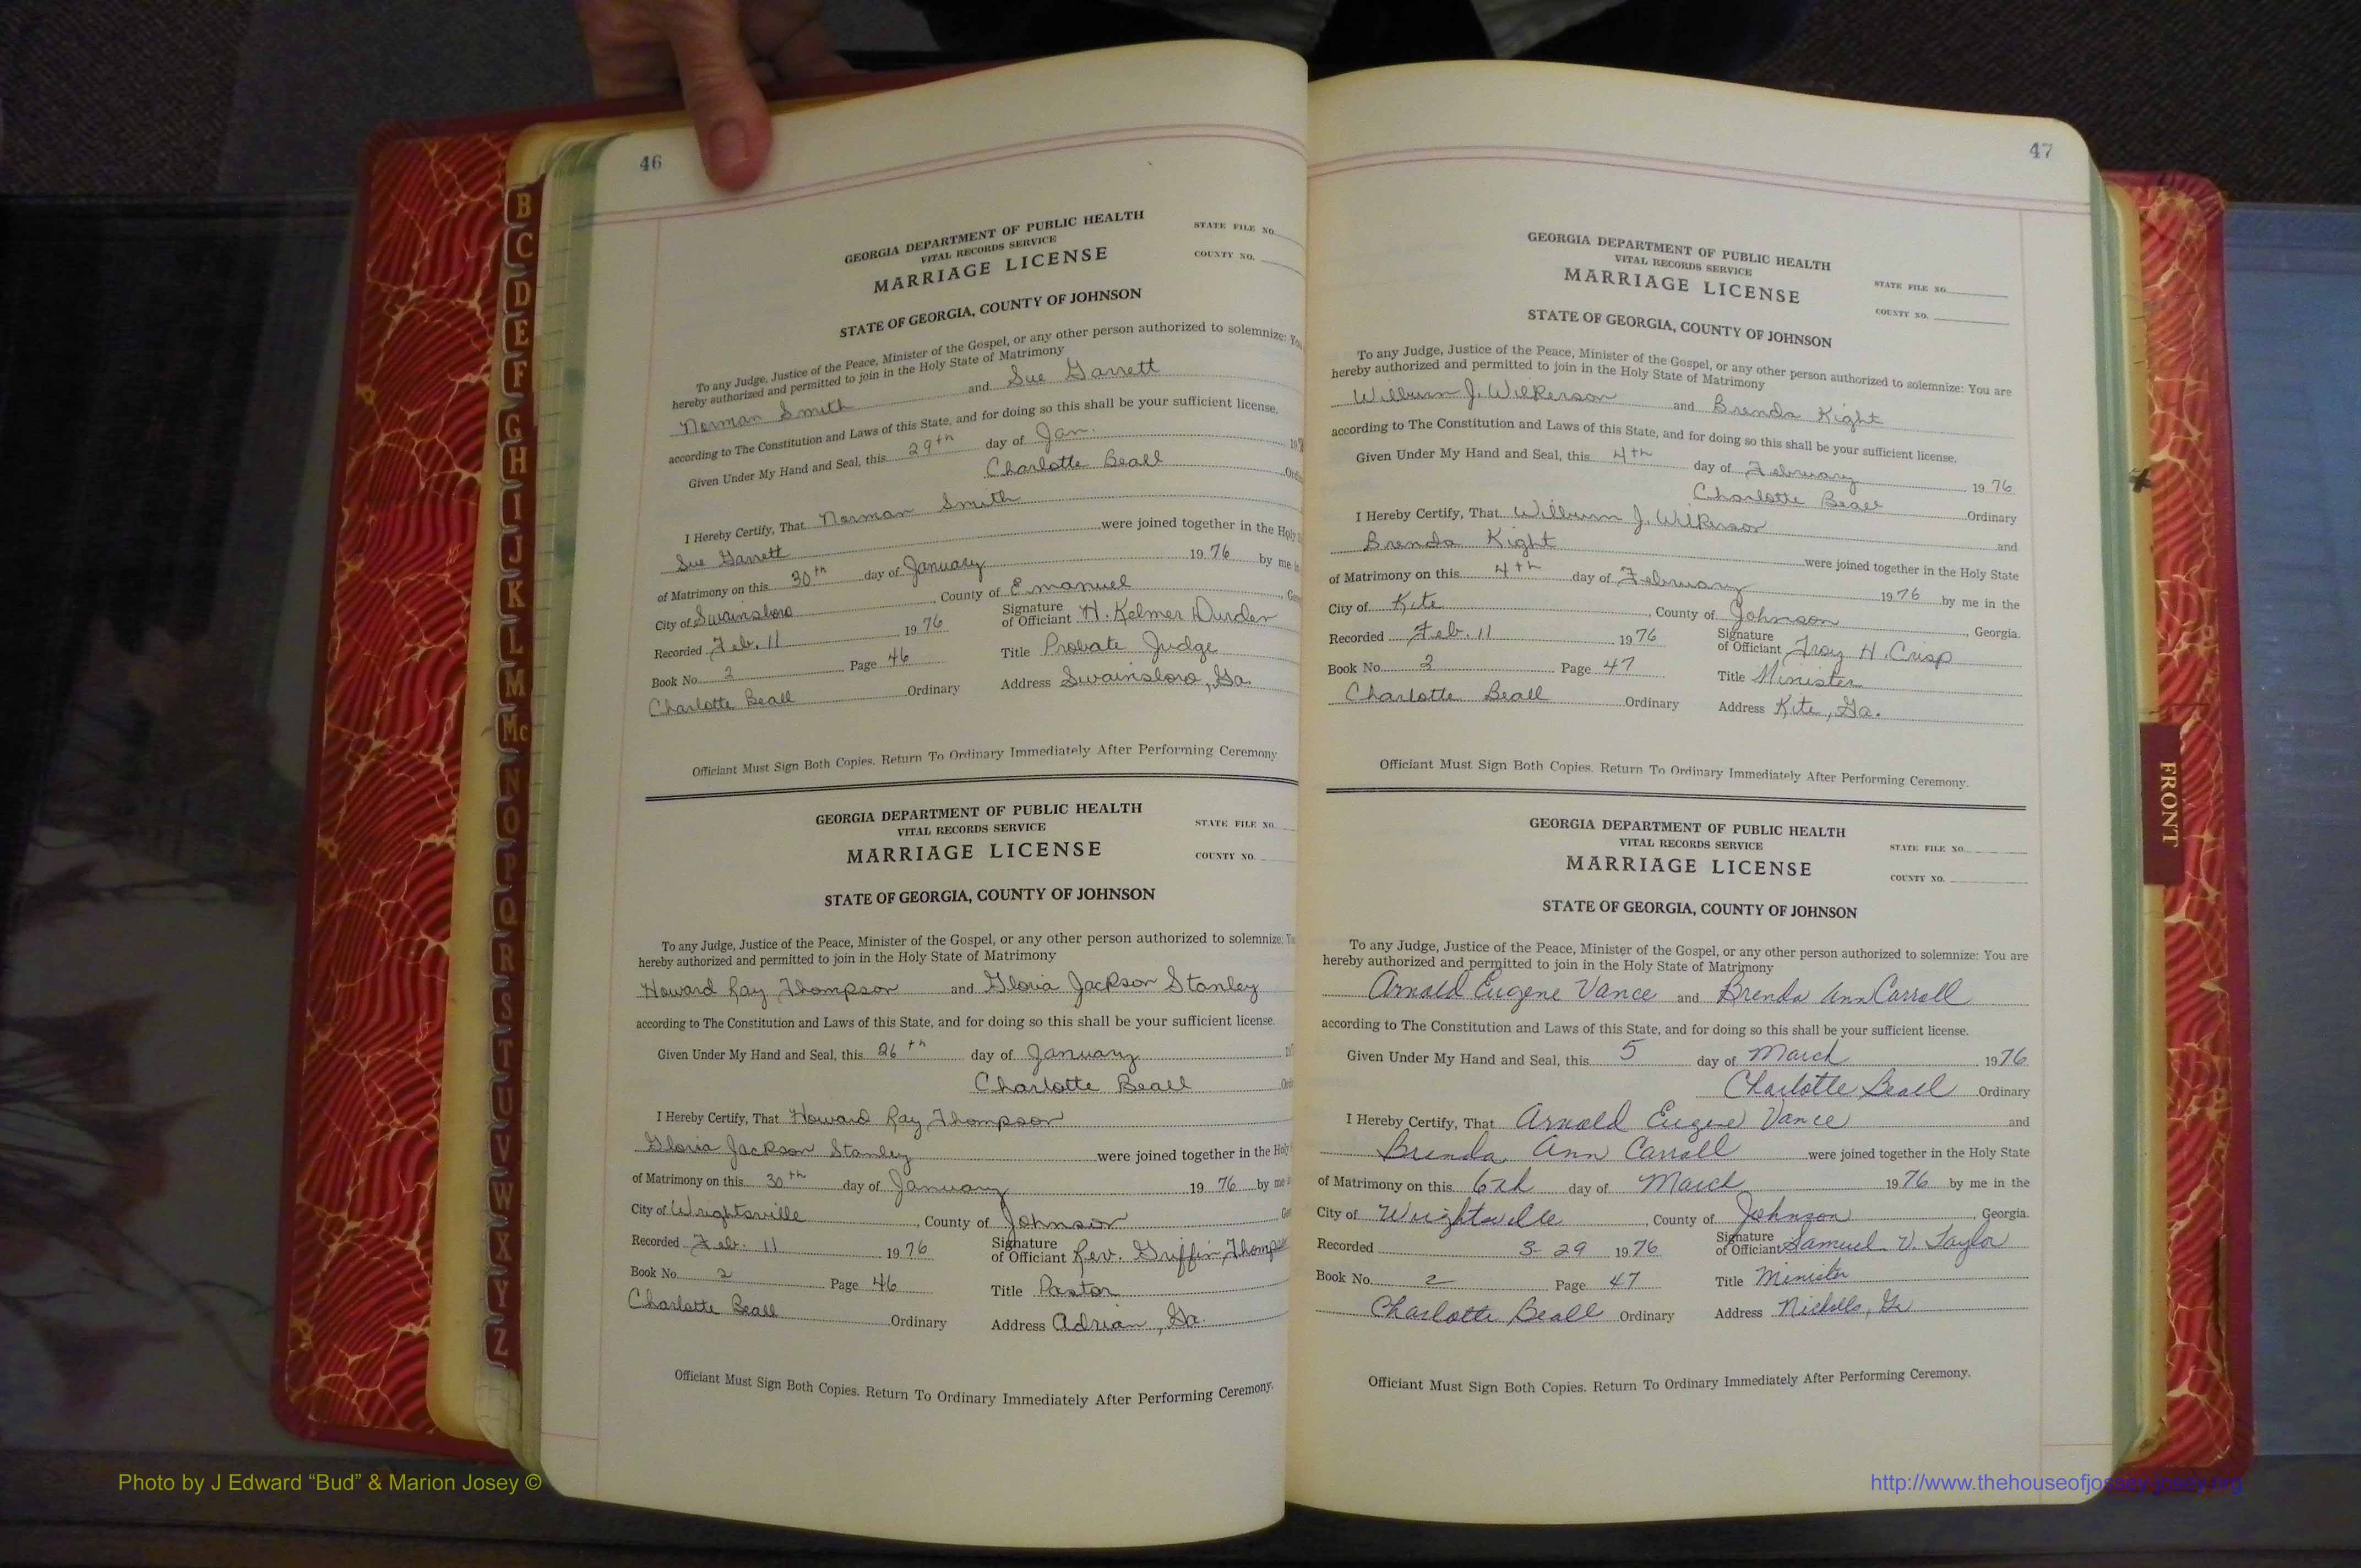 46
GEORGIA DEPARTMENT OF PUBLIC HEALTH
VITAL RECORDS SERVICE
MARRIAGE LICENSE
STATE FILE NO.
COUNTY NO.
STATE OF GEORGIA, COUNTY OF JOHNSON
To any Judge, Justice of the Peace, Minister of the Gospel, or any other person authorized to solemnize: You
hereby authorized and permitted to join in the Holy State of Matrimony
Norman Smith and Sue Garrett
according to The Constitution and Laws of this State, and for doing so this shall be your sufficient license.
Given Under My Hand and Seal, this 29th day of Jan. 19
Charlotte Beall
I Hereby Certify, That Norman Smith
Sue Garrett were joined together in the Holy
of Matrimony on this 30th day of January 1976 by me
City of Swainsboro, County of Emanuel
Recorded Feb. 11 1976 Signature of Officiant H. Kelmer Durden
Book No. 2 Page 46 Title Probate Judge
Charlotte Beall Ordinary Address Swainsboro, Ga.
Officiant Must Sign Both Copies. Return To Ordinary Immediately After Performing Ceremony
GEORGIA DEPARTMENT OF PUBLIC HEALTH
VITAL RECORDS SERVICE
MARRIAGE LICENSE
STATE FILE NO.
COUNTY NO.
STATE OF GEORGIA, COUNTY OF JOHNSON
To any Judge, Justice of the Peace, Minister of the Gospel, or any other person authorized to solemnize:
hereby authorized and permitted to join in the Holy State of Matrimony
Howard Ray Thompson and Gloria Jackson Stanley
according to The Constitution and Laws of this State, and for doing so this shall be your sufficient license.
Given Under My Hand and Seal, this 26th day of January
Charlotte Beall
I Hereby Certify, That Howard Ray Thompson
Gloria Jackson Stanley were joined together in the Holy
of Matrimony on this 30th day of January 1976 by me
City of Wrightsville, County of Johnson
Recorded Feb. 11 1976 Signature of Officiant Rev. Griffin Thomp
Book No. 2 Page 46 Title Pastor
Charlotte Beall Ordinary Address Adrian, Ga.
Officiant Must Sign Both Copies. Return To Ordinary Immediately After Performing Ceremony.
47
GEORGIA DEPARTMENT OF PUBLIC HEALTH
VITAL RECORDS SERVICE
MARRIAGE LICENSE
STATE FILE NO.
COUNTY NO.
STATE OF GEORGIA, COUNTY OF JOHNSON
To any Judge, Justice of the Peace, Minister of the Gospel, or any other person authorized to solemnize: You are
hereby authorized and permitted to join in the Holy State of Matrimony
Wilburn J. Wilkerson and Brenda Kight
according to The Constitution and Laws of this State, and for doing so this shall be your sufficient license.
Given Under My Hand and Seal, this 4th day of February 1976
Charlotte Beall Ordinary
I Hereby Certify, That Wilburn J. Wilkerson and
Brenda Kight were joined together in the Holy State
of Matrimony on this 4th day of February 1976 by me in the
City of Kite, County of Johnson, Georgia.
Recorded Feb. 11 1976 Signature of Officiant Troy H. Crisp
Book No. 2 Page 47 Title Minister
Charlotte Beall Ordinary Address Kite, Ga.
Officiant Must Sign Both Copies. Return To Ordinary Immediately After Performing Ceremony.
GEORGIA DEPARTMENT OF PUBLIC HEALTH
VITAL RECORDS SERVICE
MARRIAGE LICENSE
STATE FILE NO.
COUNTY NO.
STATE OF GEORGIA, COUNTY OF JOHNSON
To any Judge, Justice of the Peace, Minister of the Gospel, or any other person authorized to solemnize: You are
hereby authorized and permitted to join in the Holy State of Matrimony
Arnold Eugene Vance and Brenda Ann Carroll
according to The Constitution and Laws of this State, and for doing so this shall be your sufficient license.
Given Under My Hand and Seal, this 5 day of March 1976
Charlotte Beall Ordinary
I Hereby Certify, That Arnold Eugene Vance and
Brenda Ann Carroll were joined together in the Holy State
of Matrimony on this day of March 1976 by me in the
City of Wrightsville, County of Johnson, Georgia.
Recorded 3-29 1976 Signature of Officiant Samuel V. Taylor
Book No. 2 Page 47 Title Minister
Charlotte Beall Ordinary Address Nicholls, Ga
Officiant Must Sign Both Copies. Return To Ordinary Immediately After Performing Ceremony.
B
C
D
E
F
G
H
I
J
K
L
M
Mc
N
O
P
Q
R
S
T
U
V
W
X
Y
Z
FRONT
Photo by J Edward “Bud” & Marion Josey ©
http://www.thehouseofjossey-josey.org